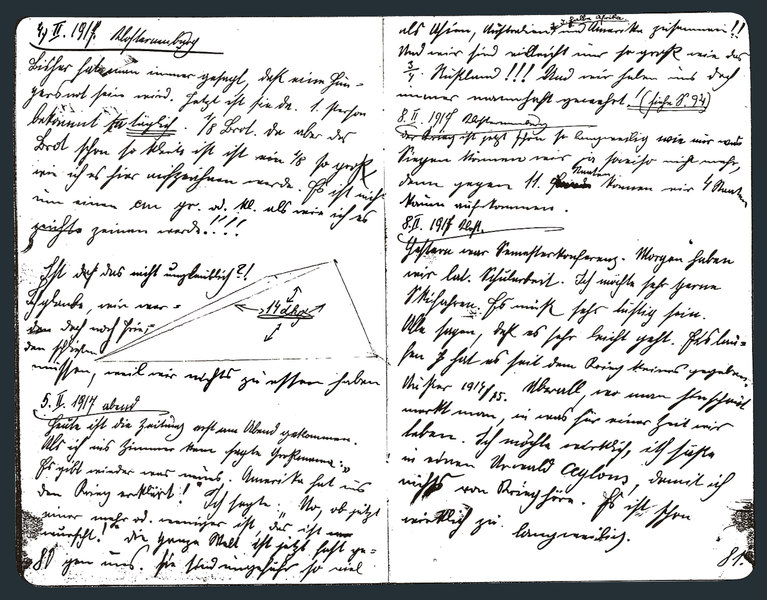 4. II. 1917. Klosterneuburg
Bisher hat man immer gesagt, daß eine Hun-
gersnot sein wird. Jetzt ist sie da. 1. Person
bekommt täglich 1/8 Brot. da aber das
Brot schon so klein ist ist ein 1/8 so groß
wie ich es hier aufzeichnen werde. Es ist nicht
um einen cm gr. od. kl. als wie ich es
zeichnen werde!!!!
Ist das nicht unglaublich?!
Ich glaube, wir wer-
den doch noch Frie-
den schließen
müssen, weil wir nichts zu essen haben
14 dkg
5. II. 1917 abend
Heute ist die Zeitung erst am Abend gekommen.
Als ich ins Zimmer kam sagte Großmama: "
Es gibt wieder was neues. Amerika hat uns
den Krieg erklärt!" Ich sagte: "No, ob jetzt
einer mehr od. weniger ist das ist
wurscht!" die ganze Welt ist jetzt fast ge-
gen uns. Sie sind ungefähr so viel
80
als Asien, Australien, und Amerika zusammen!!
halb Afrika
Und wir sind vielleicht nur so groß wie das
3/4 Rußland!!! Und wir haben uns doch
immer mannhaft gewehrt! (siehe S. 94)
8. II. 1917 Klosterneuburg
der Krieg ist jetzt schon so langweilig wie nur was
Siegen können wir ja sowieso nicht mehr,
denn gegen 11. Staaten können wir 4 Staaten
kaum aufkommen.
8. II. 1917 Klost.
Gestern war Semesterkonferenz. Morgen haben
wir lat. Schularbeit. Ich möchte sehr gerne
Skifahren. Es muß sehr lustig sein.
Alle sagen, daß es sehr leicht geht. Eislau-
fen hat es seit dem Krieg keines gegeben.
Außer 1914/15. Überall, wo man hinschaut
merkt man, in was für einer Zeit wir
leben. Ich möchte wirklich, ich säße
in einem Urwald Ceylons, damit ich
nichts von Krieg höre. Es ist schon
wirklich zu langweilig.
81.